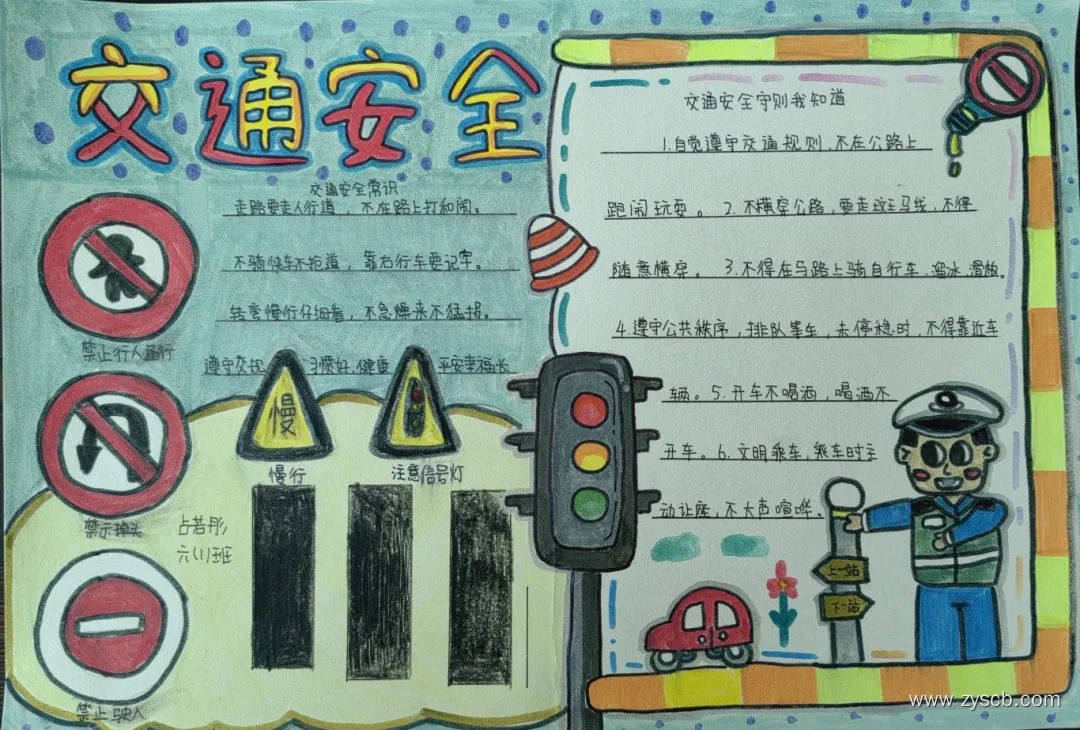 交通安全
交通安全常识
走路要走人行道，不在路上打和闹。
不骑快车不抢道，靠右行车要记牢。
转弯慢行仔细看，不急燥来不猛拐。
遵守交规 习惯好，健康 平安幸福长
禁止行人通行
禁示掉头
禁止驶入
占若彤
六(1)班
慢
慢行
注意信号灯
交通安全守则我知道
1.自觉遵守交通规则，不在公路上
跑闹玩耍。2.不横穿公路，要走斑马线，不得
随意横穿。3.不得在马路上骑自行车，溜冰，滑板。
4.遵守公共秩序，排队等车，未停稳时，不得靠近车
辆。5.开车不喝酒，喝酒不
开车。6.文明乘车，乘车时主
动让座，不大声喧哗。
上一站
下一站
www.zyscb.com